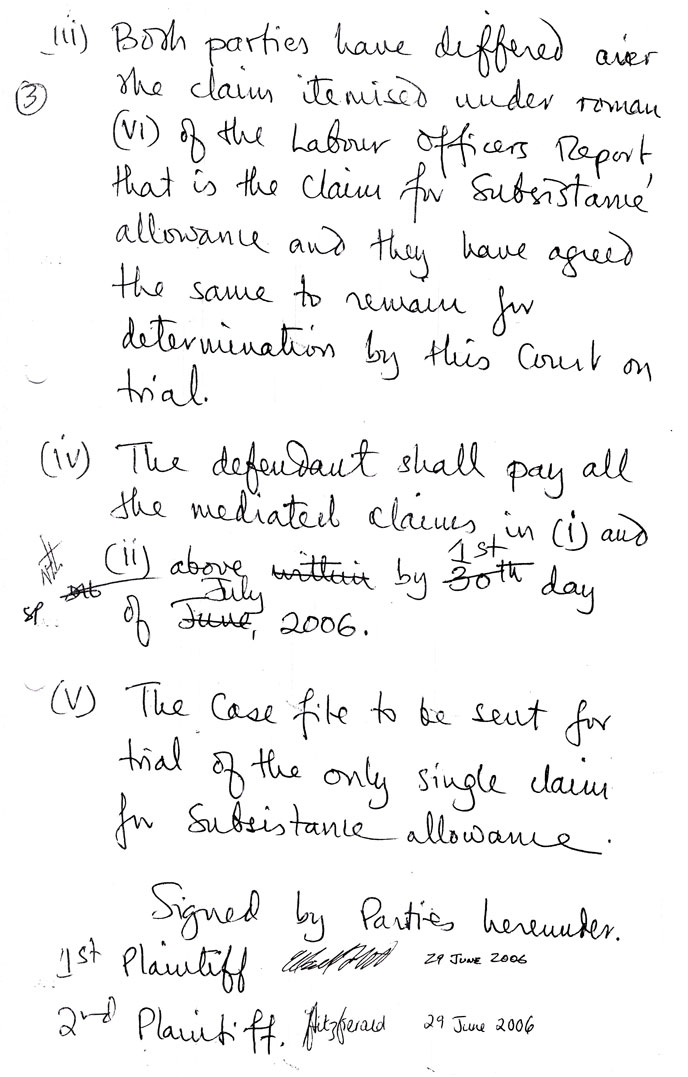 iii) Both parties have differed over
③ the claim itemised under roman
(VI) of the Labour Officers Report,
that is the claim for Subsistance
allowance and they have agreed
the same to remain for
determination by this Court on
trial.
(iv) The defendant shall pay all
the mediated claims in (i) and
(ii) above within by 30th 1st day
of June, July 2006.
SP
(V) The Case file to be sent for
trial of the only single claim
for Subsistance allowance.
Signed by Parties hereunder.
1st Plaintiff 29 JUNE 2006
2nd Plaintiff. Fitzgerald 29 June 2006